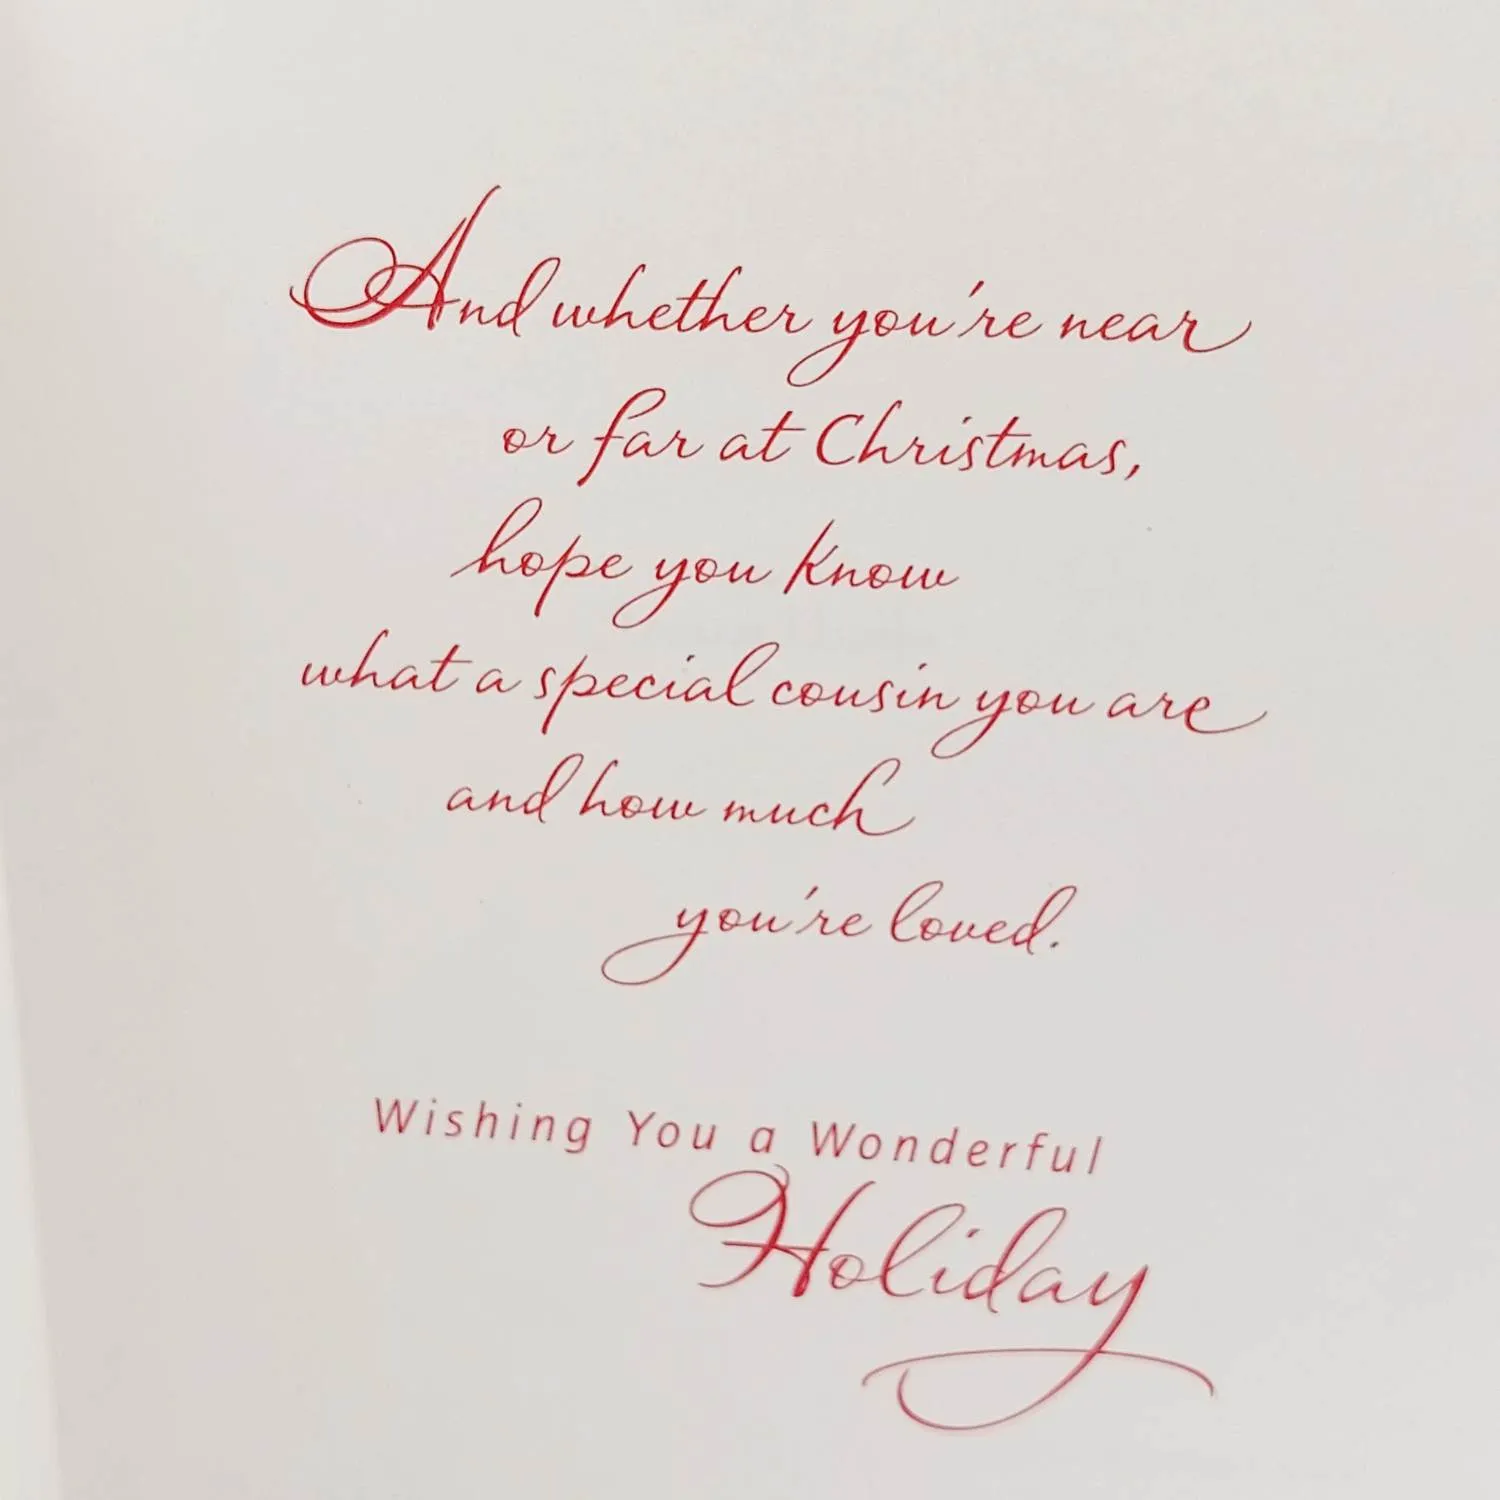 And whether you're near
or far at Christmas,
hope you know
what a special cousin you are
and how much
you're loved.
Wishing You a Wonderful
Holiday